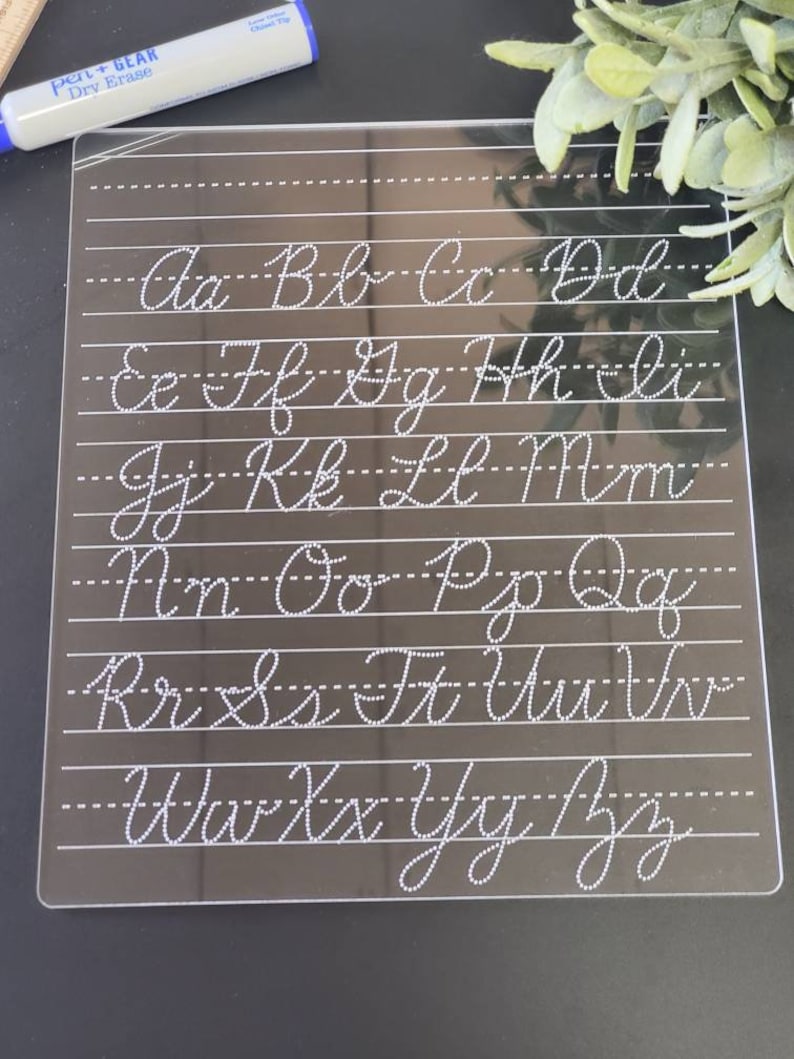 Low Odor
Chisel Tip
pen + GEAR
Dry Erase
Aa Bb Cc Dd
Ee Ff Gg Hh Ii
Jj Kk Ll Mm
Nn Oo Pp Qq
Rr Ss Tt Uu Vv
Ww Xx Yy Zz